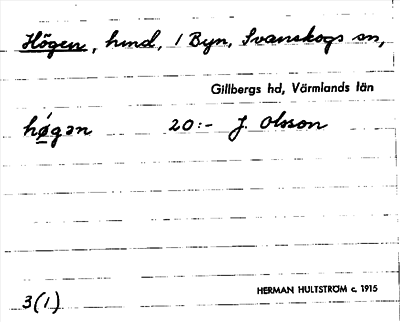 Högen, hmd, 1 Byn, Svanskogs sn,
Gillbergs hd, Värmlands län
hǿgən 20:- J. Olsson
3(1) HERMAN HULTSTRÖM c. 1915